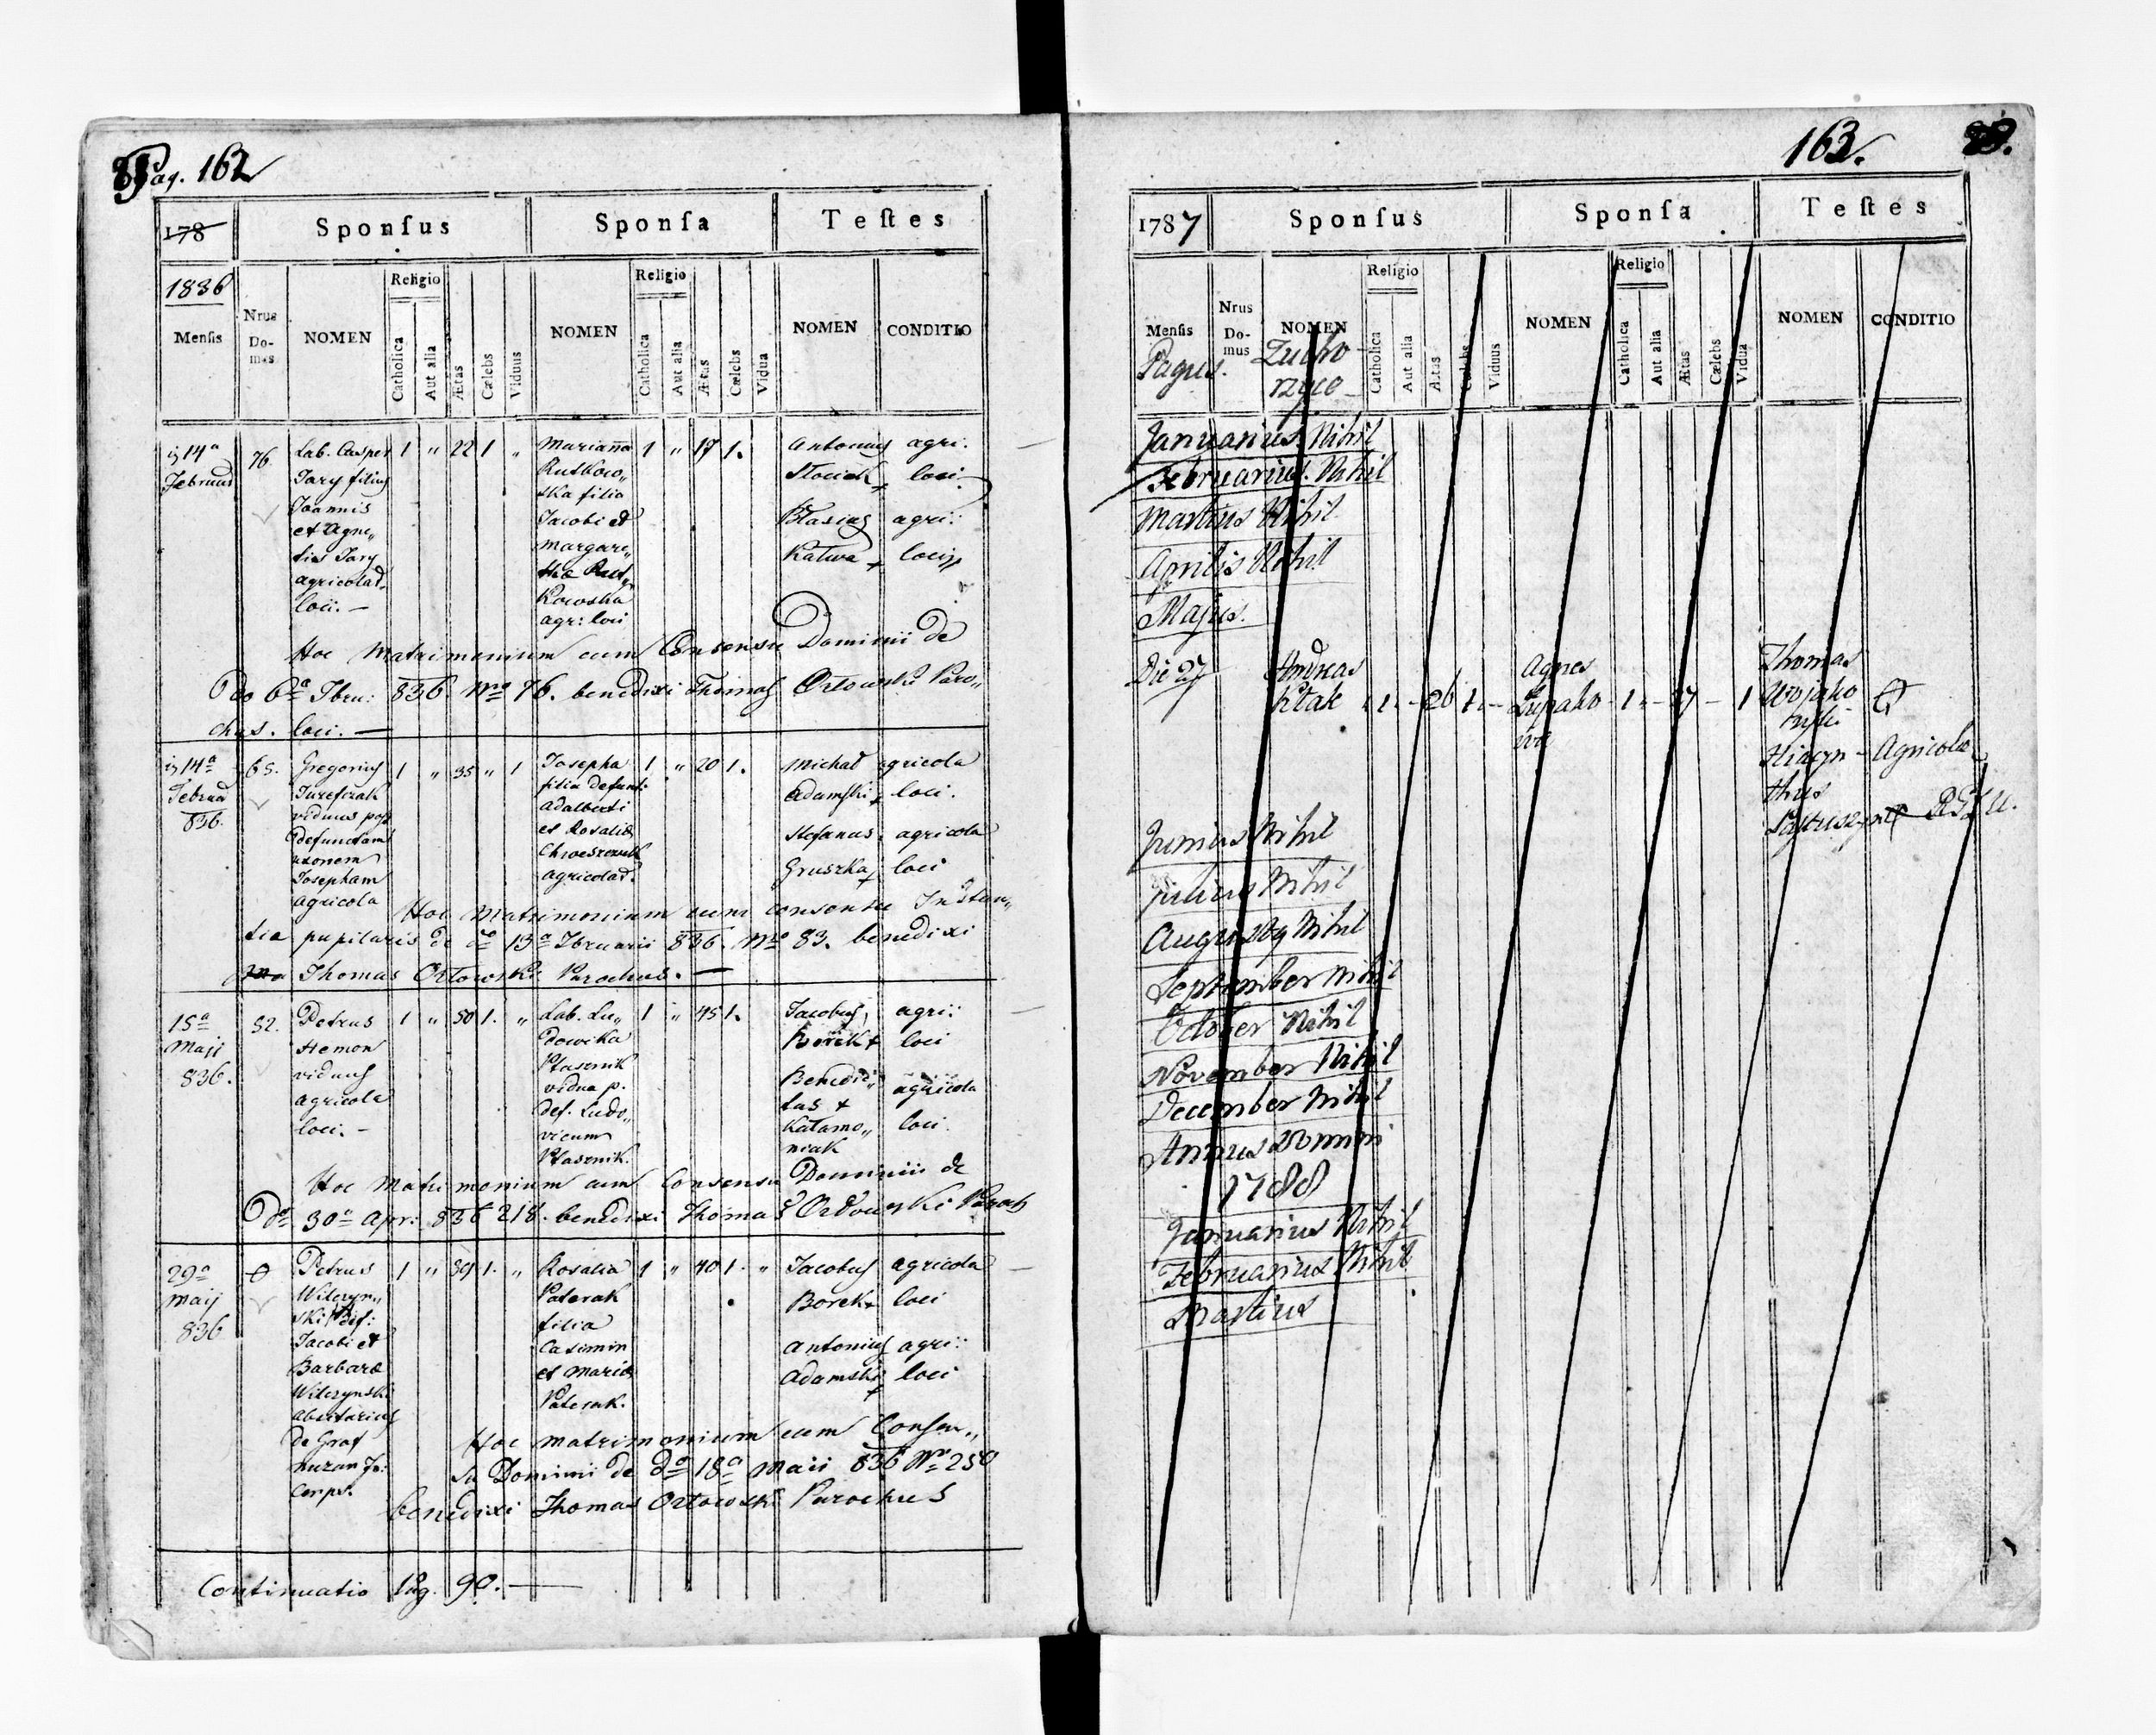 Pag. 162
178
Sponſus
Sponſa
Teſtes
1836
Menſis
Nrus Domus
NOMEN
Religio
Catholica
Aut alia
Ætas
Cælebs
Viduus
NOMEN
Religio
Catholica
Aut alia
Ætas
Cælebs
Vidua
NOMEN
CONDITIO
14a 76. Lab. Casper 1 " 22 1 " Marianna 1 " 17 1. Antonius agri:
Februar Jary filius Rutkow„ Stociek + loci.
Joannis ska filia
et Agne„ Jacobi et Blasius agri:
tis Jary Margare„ Katwa + loci
agricolar. tha Rut„
loci. — kowska
agr: loci
Hoc Matrimonium cum Consensu Dominii de
Ddo 6a Fbru: 836. Nro 76. benedixi Thomas Ortowski Paro„
chus. loci. —
14a 65. Gregorius 1 " 35 " 1 Josepha 1 " 20 1. Michał agricola
Februar Jurefczak filia defunt: Adamski + loci.
836. viduus post Adalberti
defunctam et Rosalia Stefanus agricola
uxorem Gruszka + loci
Josepham agricolar.
agricola
Hoc Matrimonium cum consensu Instan„
tia pupilaris de do 13a Fbruarii 836. Nro 83. benedixi
Thomas Ortowski Parochus. —
15a 52. Petrus 1 " 50 1. " Lab. Lu„ 1 " 45 1. Jacobus agri:
Maji Hemon dowika Borek + loci
836. viduus Ptasznik
agricola vidua p. Benedic„ agricola
loci. — def. Ludo„ tus + loci.
vicum Katamo„
Ptasznik. niak
Hoc Matrimonium cum Consensu Dominii de
Do 30a Apr: 836 218. benedixi Thomas Ortowski Paroch
29a Petrus 1 " 39 1. " Rosalia 1 " 40 1. " Jacobus agricola
Maij Wilczyn„ Paterak Borek + loci
836 ski filia
Jacobi et Casimiri Antonius agri:
Barbara et Maria Adamski + loci
Wilczynski Paterak.
de Graf
Hoc matrimonium cum Consen„
su Dominii de do 18a Maii 836 Nro 250
benedixi Thomas Ortowski Parochus
Continuatio Pag. 90. —
163.
1787
Sponſus
Sponſa
Teſtes
Menſis
Nrus Domus
NOMEN
Religio
Catholica
Aut alia
Ætas
Cælebs
Viduus
NOMEN
Religio
Catholica
Aut alia
Ætas
Cælebs
Vidua
NOMEN
CONDITIO
Pagus.
Januarius Nihil
Februarius. Nihil
Martius Nihil
Aprilis Nihil
Majus.
Die 27 Andreas Agnes Thomas
Ptak 1 - 26 1 - 1 - 27 - 1
Hiacyn- Agricola
thus
Junius Nihil
Julius Nihil
Augustus Nihil
September Nihil
October Nihil
November Nihil
December Nihil
Annus Domini
1788
Januarius Nihil
Februarius Nihil
Martius